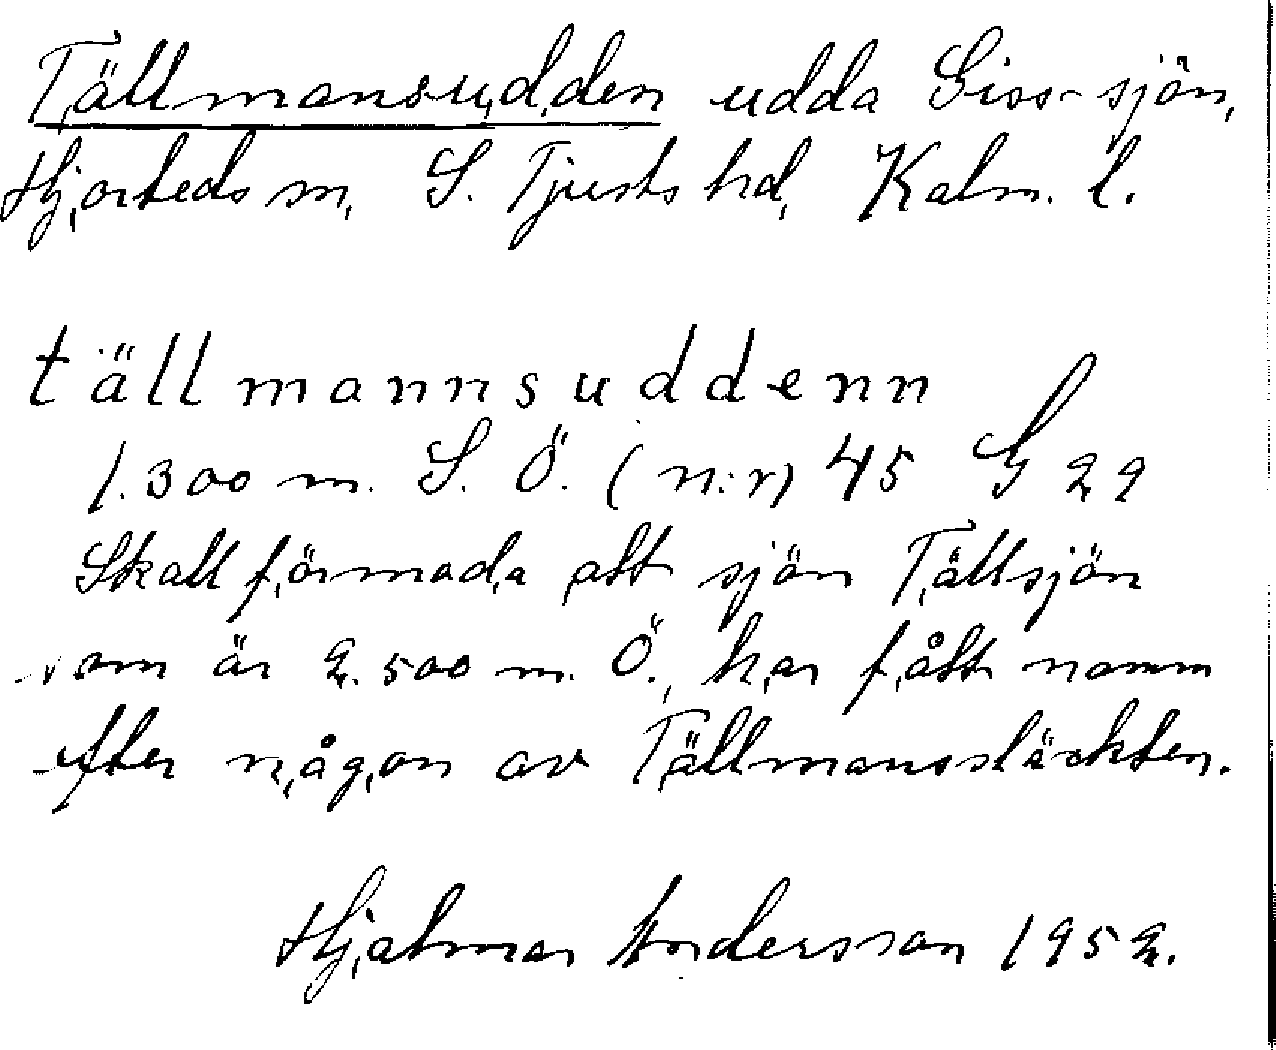 Tällmansudden udda Giss-sjön,
Hjorteds sn, S. Tjusts hd, Kalm. l.
tällmannsuddenn
1.300 m. S. Ö. (n:r) 45 G 29
Skall förmoda att sjön Tällsjön
som är 2.500 m. Ö., har fått namn
efter någon av Tällmanssläckten.
Hjalmar Andersson 1952.